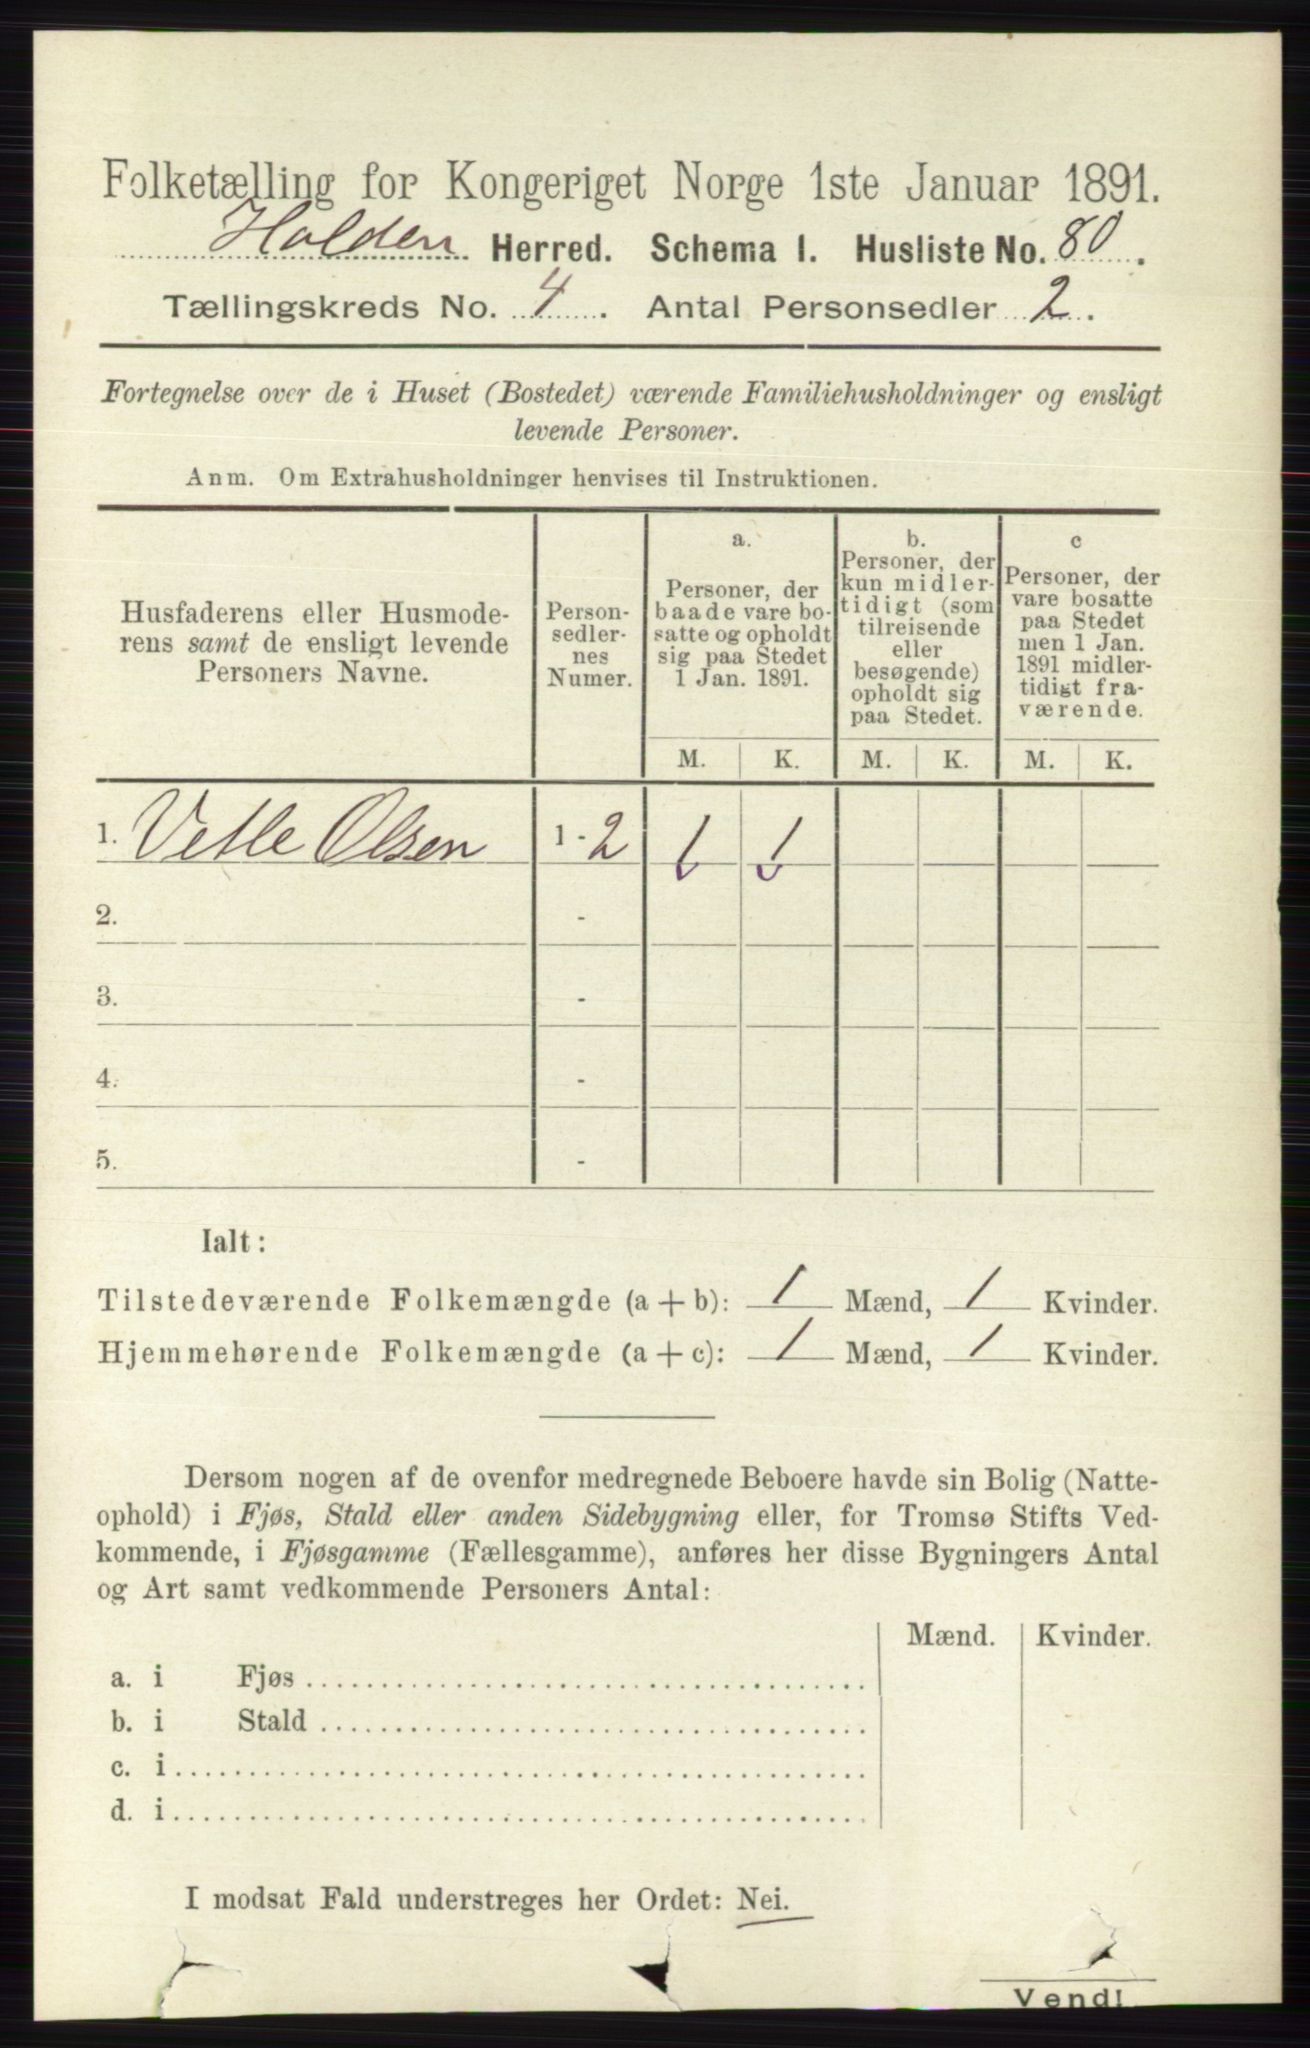 Folketælling for Kongeriget Norge 1ste Januar 1891.
Holden Herred. Schema I. Husliste No. 80.
Tællingskreds No. 4. Antal Personsedler 2.
Fortegnelse over de i Huset (Bostedet) værende Familiehusholdninger og ensligt
levende Personer.
Anm. Om Extrahusholdninger henvises til Instruktionen.
Husfaderens eller Husmode-
rens samt de ensligt levende
Personers Navne.
Person-
sedler-
nes
Numer.
a.
Personer, der
baade vare bo-
satte og opholdt
sig paa Stedet
1 Jan. 1891.
b.
Personer, der
kun midler-
tidigt (som
tilreisende
eller
besøgende)
opholdt sig
paa Stedet.
c
Personer, der
vare bosatte
paa Stedet
men 1 Jan.
1891 midler-
tidigt fra-
værende.
M. K. M. K. M. K.
1. Vetle Olsen 1 - 2 1 1
2. -
3. -
4. -
5. -
Ialt:
Tilstedeværende Folkemængde (a + b): 1 Mænd, 1 Kvinder.
Hjemmehørende Folkemængde (a + c): 1 Mænd, 1 Kvinder.
Dersom nogen af de ovenfor medregnede Beboere havde sin Bolig (Natte-
ophold) i Fjøs, Stald eller anden Sidebygning eller, for Tromsø Stifts Ved-
kommende, i Fjøsgamme (Fællesgamme), anføres her disse Bygningers Antal
og Art samt vedkommende Personers Antal:
Mænd. Kvinder.
a. i Fjøs
b. i Stald
c. i
d. i
I modsat Fald understreges her Ordet: Nei.
Vend!